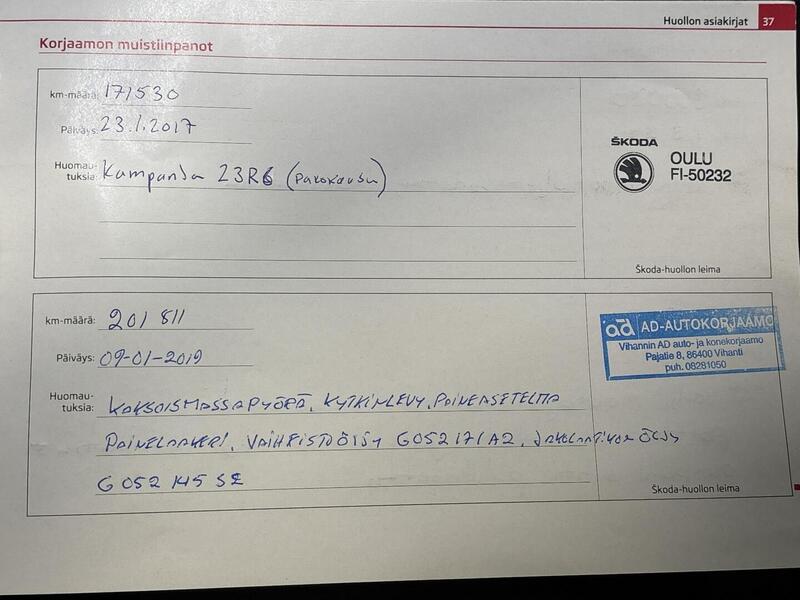 Huollon asiakirjat 37
Korjaamon muistiinpanot
km-määrä: 171530
Päiväys: 23.1.2017
Huomau-
tuksia: Kampanja 23R6 (pakokaasu)
ŠKODA
OULU
FI-50232
Škoda-huollon leima
km-määrä: 201 811
Päiväys: 09-01-2019
Huomau-
tuksia: KAKSOISMASSAPYÖRÄ, KYTKINLEVY, PAINEASETELMA
PAINELAAKERI, VAIHTEISTOÖLJY G052171A2, JAKOLAATIKON ÖLJY
G 052 145 S2
ad AD-AUTOKORJAAMO
Vihannin AD auto- ja konekorjaamo
Pajatie 8, 86400 Vihanti
puh. 08281050
Škoda-huollon leima